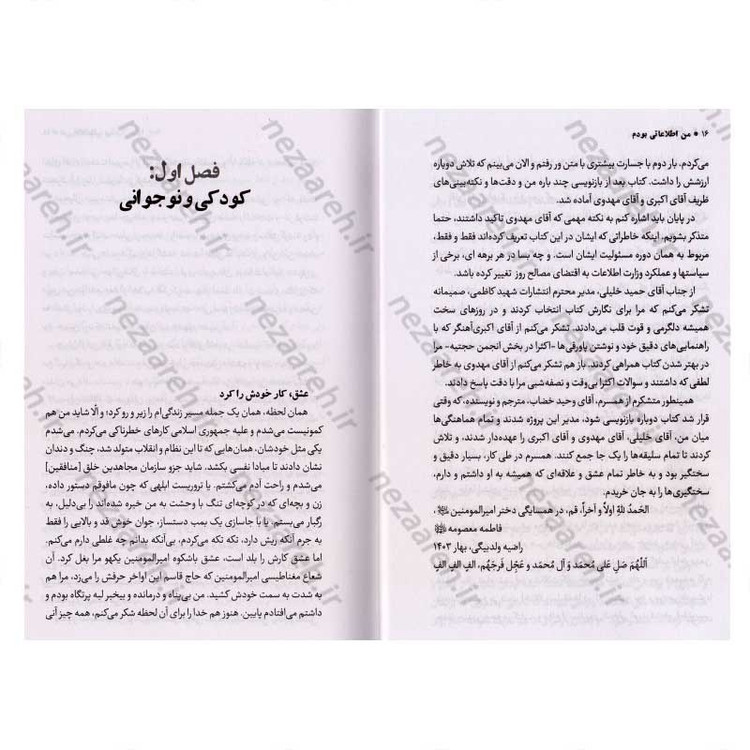 ۱۶ ● من اطلاعاتی بودم
می‌کردم، بار دوم با جسارت بیشتری با متن ور رفتم و الان می‌بینم که تلاش دوباره
ارزشش را داشت. کتاب بعد از بازنویسی چند باره من و دقت‌ها و نکته‌بینی‌های
ظریف آقای اکبری و آقای مهدوی آماده شد.
در پایان باید اشاره کنم به نکته مهمی که آقای مهدوی تاکید داشتند، حتما
متذکر بشویم. اینکه خاطراتی که ایشان در این کتاب تعریف کرده‌اند فقط و فقط،
مربوط به همان دوره مسئولیت ایشان است. و چه بسا در هر برهه ای، برخی از
سیاستها و عملکرد وزارت اطلاعات به اقتضای مصالح روز تغییر کرده باشد.
از جناب آقای حمید خلیلی، مدیر محترم انتشارات شهید کاظمی، صمیمانه
تشکر می‌کنم که مرا برای نگارش کتاب انتخاب کردند و در روزهای سخت
همیشه دلگرمی و قوت قلب می‌دادند. تشکر می‌کنم از آقای اکبری‌آهنگر که با
راهنمایی‌های دقیق خود و نوشتن پاورقی‌ها -اکثرا در بخش انجمن حجتیه- مرا
در بهتر شدن کتاب همراهی کردند. باز هم تشکر می‌کنم از آقای مهدوی به خاطر
لطفی که داشتند و سوالات اکثرا بی‌وقت و نصفه‌شبی مرا با دقت پاسخ دادند.
همینطور متشکرم از همسرم، آقای وحید خضاب، مترجم و نویسنده، که وقتی
قرار شد کتاب دوباره بازنویسی شود، مدیر این پروژه شدند و تمام هماهنگی‌ها
میان من، آقای خلیلی، آقای مهدوی و آقای اکبری را عهده‌دار شدند، و تلاش
کردند تا تمام سلیقه‌ها را یک جا جمع کنند. همسرم در طی کار، بسیار دقیق و
سختگیر بود و به خاطر تمام عشق و علاقه‌ای که همیشه به او داشتم و دارم،
سختگیری‌ها را به جان خریدم.
الحَمدُ للهِ اولاً و آخِراً، قم، در همسایگی دختر امیرالمومنین ﷺ،
فاطمه معصومه
راضیه ولدبیگی، بهار ۱۴۰۳
اَللّهُمَّ صَلِّ عَلی مُحمّد وَ آل مُحمد و عَجّل فَرجَهُم، الفِ الفِ الفِ
فصل اول:
کودکی و نوجوانی
عشق، کار خودش را کرد
همان لحظه، همان یک جمله مسیر زندگی‌ام را زیر و رو کرد؛ و اِلّا شاید من هم
کمونیست می‌شدم و علیه جمهوری اسلامی کارهای خطرناکی می‌کردم. می‌شدم
یکی مثل خودشان، همان‌هایی که تا این نظام و انقلاب متولد شد، چنگ و دندان
نشان دادند تا مبادا نفسی بکشد. شاید جزو سازمان مجاهدین خلق [منافقین]
می‌شدم و راحت آدم می‌کشتم. یا تروریست ابلهی که چون مافوقم دستور داده،
زن و بچه‌ای که در کوچه‌ای تنگ با وحشت به من خیره شده‌اند را بی‌دلیل، به
رگبار می‌بستم. یا با جاسازی یک بمب دستساز، جوان خوش قد و بالایی را فقط
به جرم آنکه ریش دارد، تکه تکه می‌کردم، بی‌آنکه بدانم چه غلطی دارم می‌کنم.
اما عشق کارش را بلد است، عشق باشکوه امیرالمومنین یکهو مرا بغل کرد. آن
شعاع مغناطیسی امیرالمومنین که حاج قاسم این اواخر حرفش را می‌زد، مرا هم
به شدت به سمت خودش کشید. من بی‌پناه و درمانده و بیخبر لبه پرتگاه بودم و
داشتم می‌افتادم پایین. هنوز هم خدا را برای آن لحظه شکر می‌کنم، همه چیز آنی
nezaareh.ir